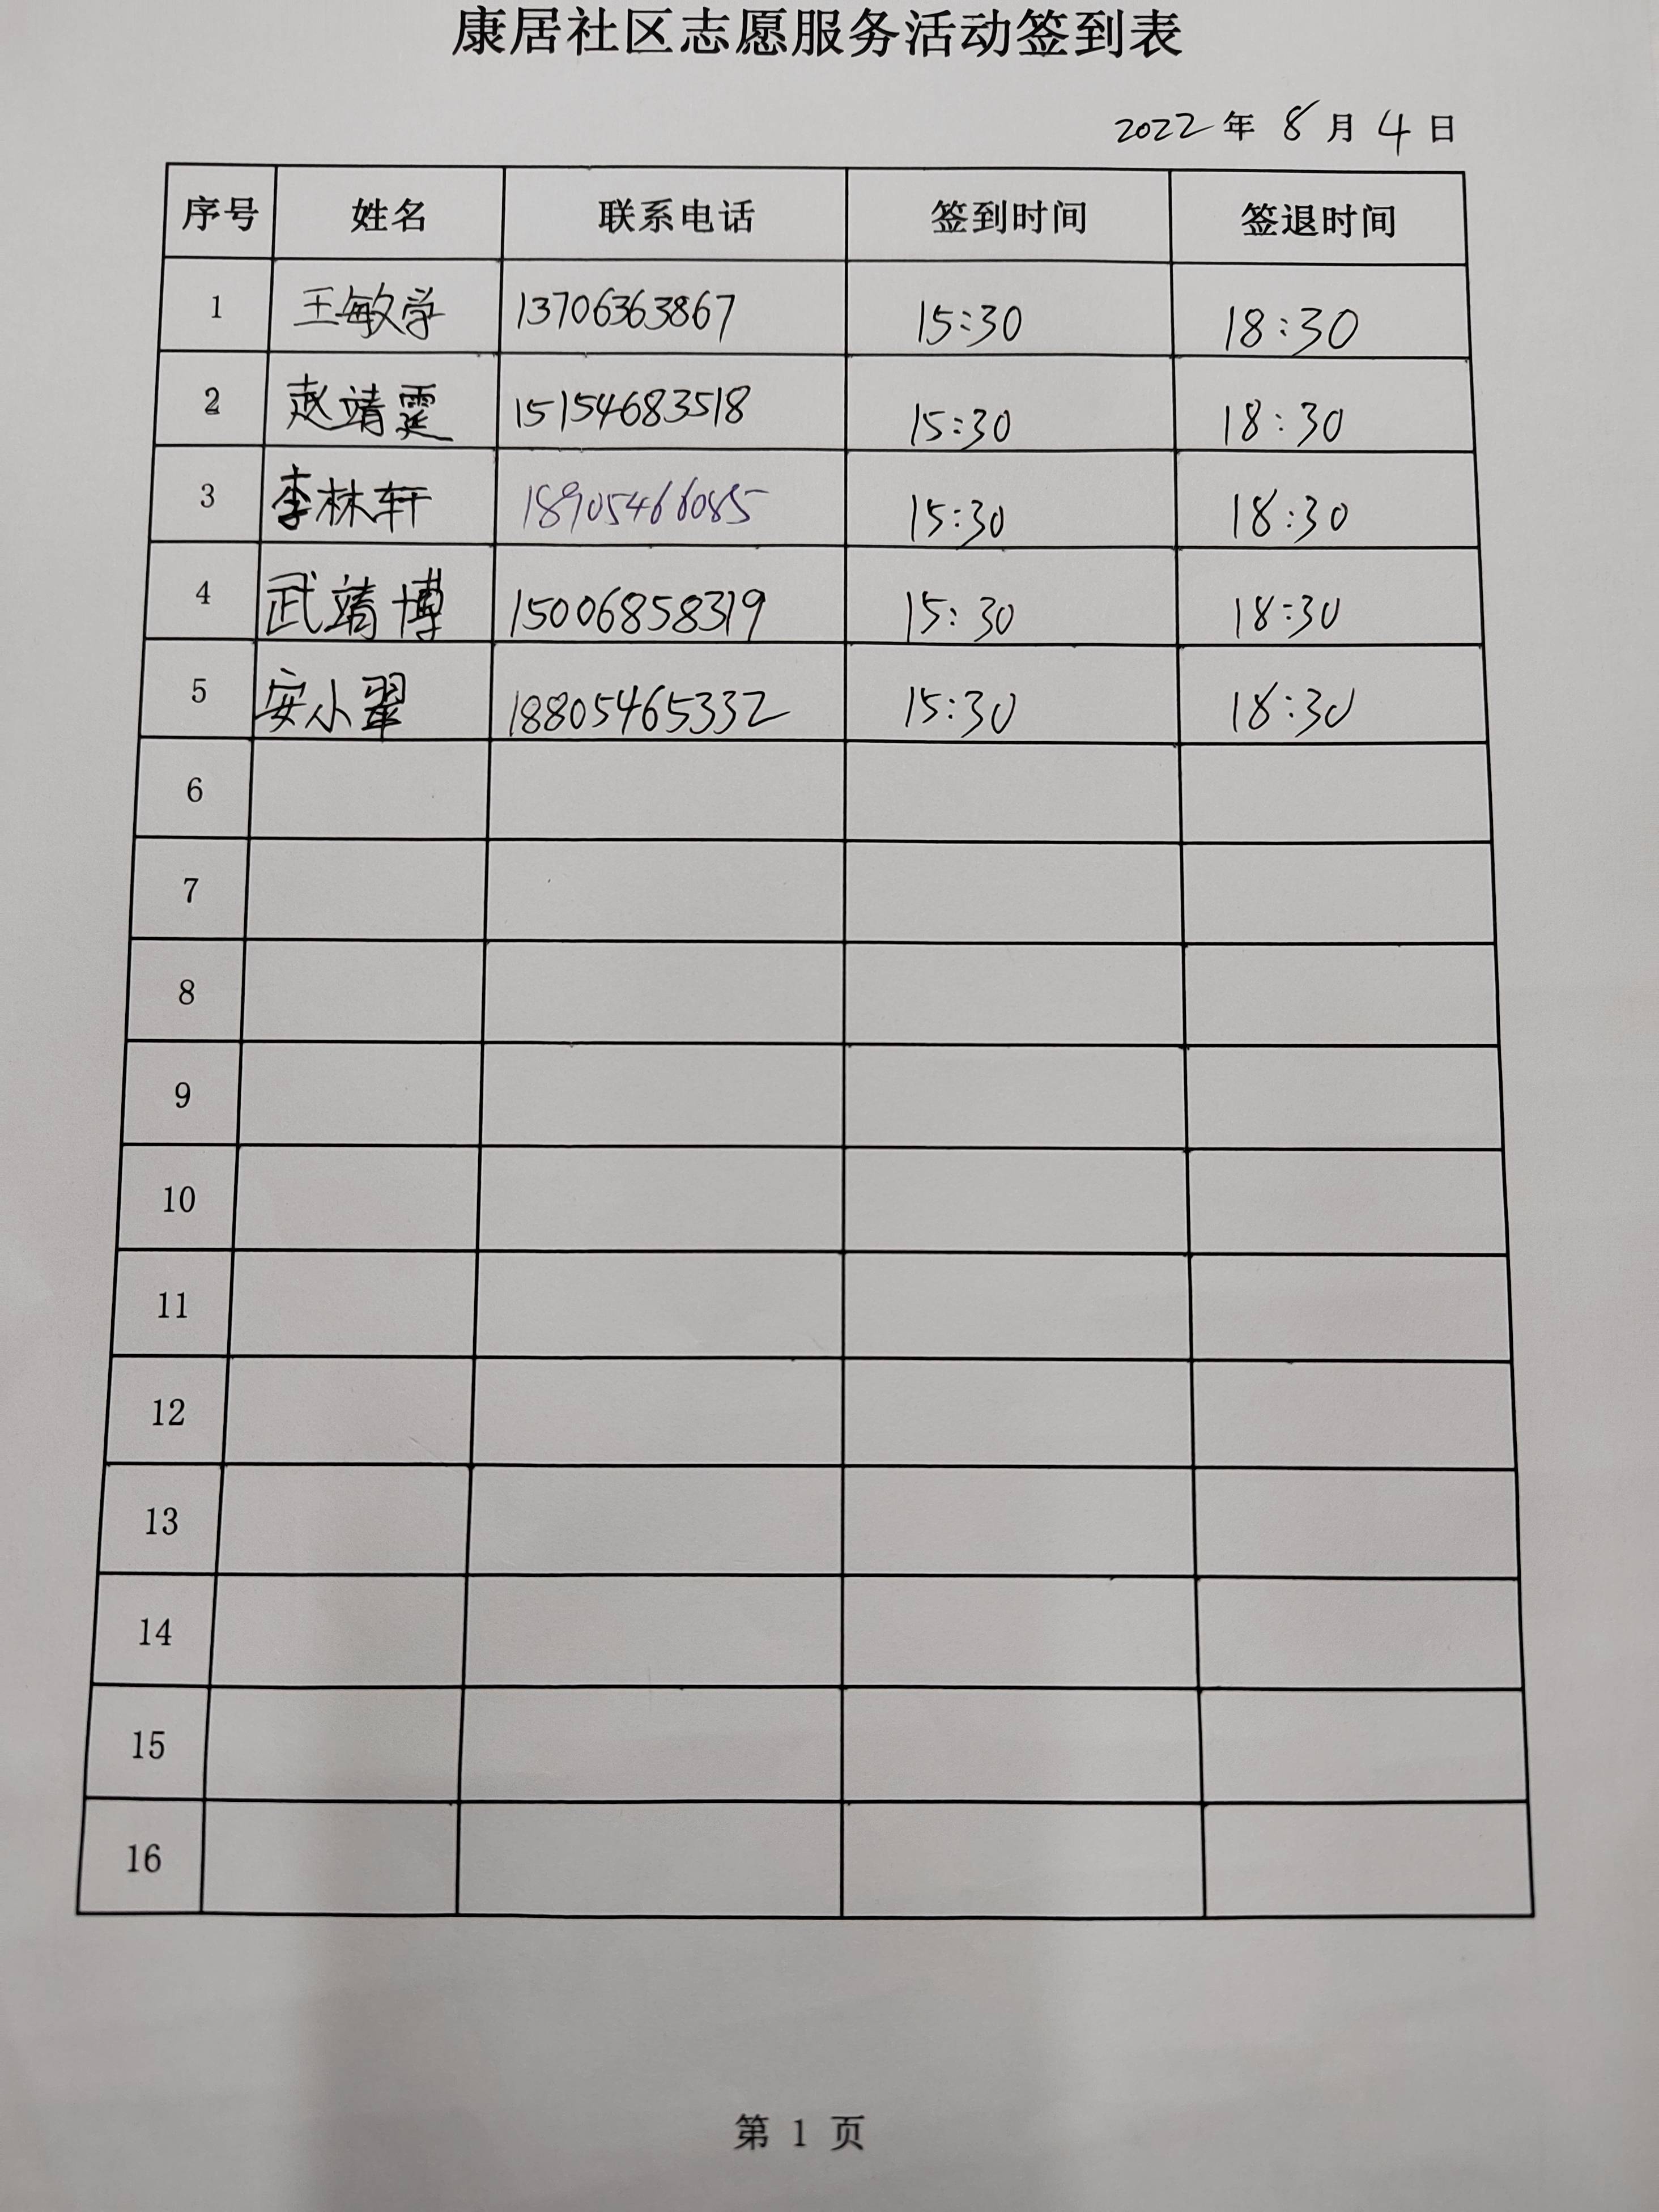 康居社区志愿服务活动签到表
2022年 8月 4日
序号 姓名 联系电话 签到时间 签退时间
1 王敏学 13706363867 15:30 18:30
2 赵靖霆 15154683518 15:30 18:30
3 李林轩 18905466085 15:30 18:30
4 武靖博 15006858319 15:30 18:30
5 安小翠 18805465332 15:30 18:30
6
7
8
9
10
11
12
13
14
15
16
第 1 页